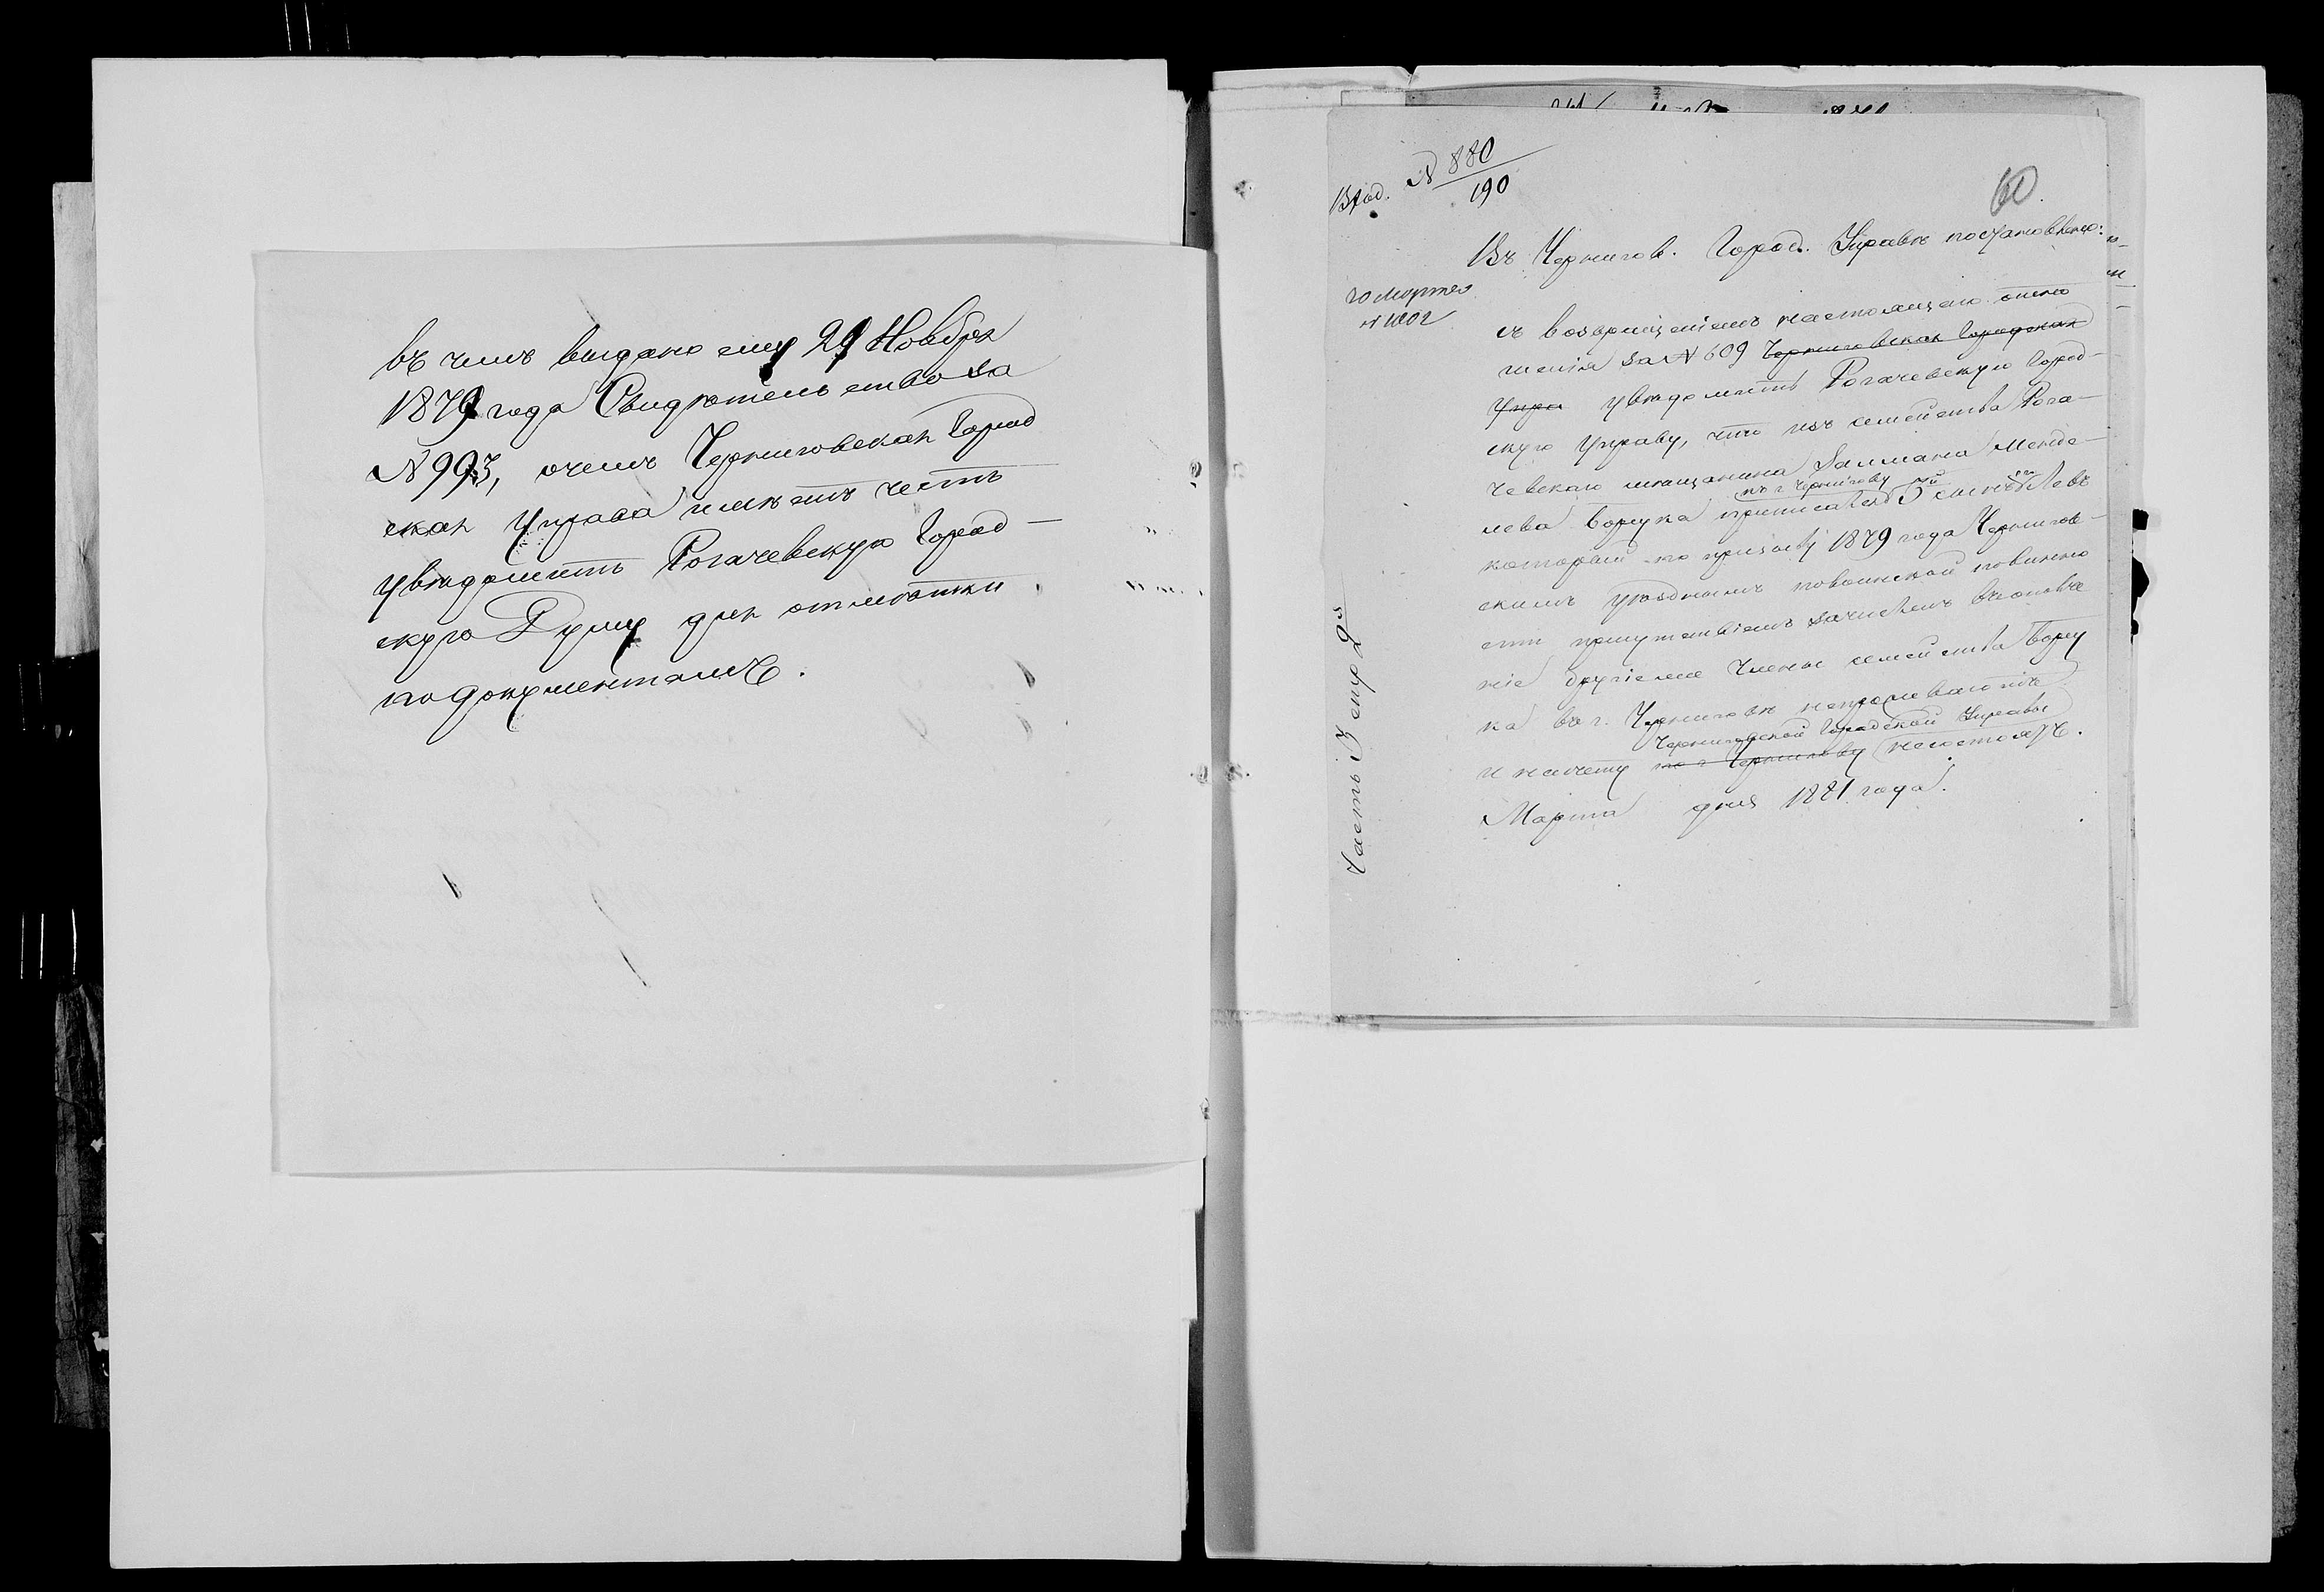 въ чемъ выдано ему 29 Ноября
1879 года Свидѣтельство за
№ 993, о чемъ Черниговская Город
ская Управа имѣетъ честь
увѣдомить Рогачевскую Город-
скую Думу для отмѣтки
по документамъ.
Вход. № 880
190
60.
Въ Чернигов. Город. Управѣ постановлено:
20 Марта
№ 1002
съ возвращеніемъ настоящаго отно
шенія за № 609 Черниговская Городская
Упра увѣдомить Рогачевскую Город-
скую Управу, что изъ семейства Рога-
чевскаго мѣщанина Залмана Менде-
къ г. Чернигову
лева Борука приписанъ 3й сынъ Левъ
который по призыву 1879 года Чернигов-
скимъ уѣзднымъ по воинской повинно
сти присутствіемъ зачисленъ въ ополче
ніе другіе же члены семейства Бору
ка въ г. Черниговѣ не проживаютъ
Черниговской Городской Управы
и на счету по г. Чернигову не состоятъ.
Марта дня 1881 года.
Часть 3 стр 29